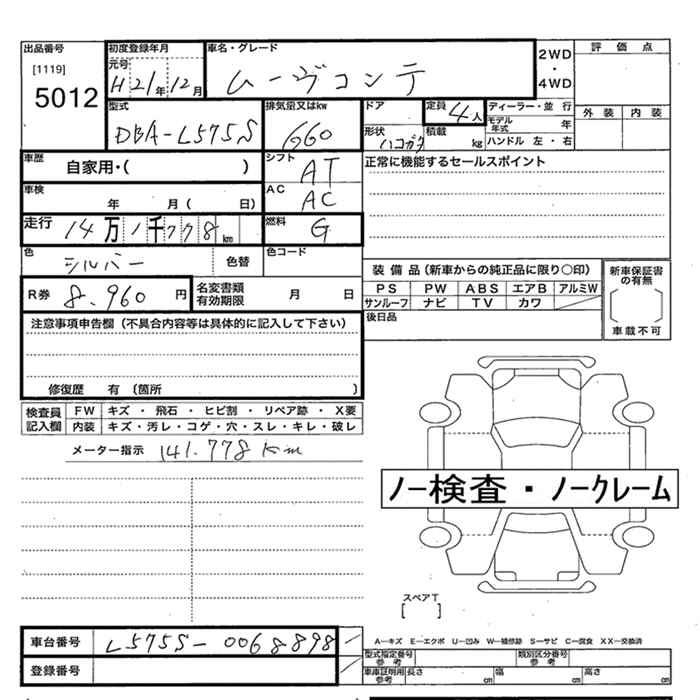 出品番号
[1119]
5012
初度登録年月
元号
H21年12月
車名・グレード
ムーヴコンテ
2WD
・
4WD
評価点
外装 内装
型式
DBA-L575S
排気量又はkw
660
ドア
形状
ハコガタ
定員
4人
積載
kg
ディーラー・並行
モデル年式 年
ハンドル 左・右
車歴
自家用・( )
シフト
AT
正常に機能するセールスポイント
車検
年 月( 日)
AC
AC
走行
14万1千778km
燃料
G
色
シルバー
色替
色コード
R券 8.960円
名変書類
有効期限
月 日
装備品(新車からの純正品に限り○印)
PS PW ABS エアB アルミW
サンルーフ ナビ TV カワ
新車保証書
の有無
車載不可
後日品
注意事項申告欄(不具合内容等は具体的に記入して下さい)
修復歴 有(箇所 )
検査員
記入欄
FW キズ・飛石・ヒビ割・リペア跡・X要
内装 キズ・汚レ・コゲ・穴・スレ・キレ・破レ
メーター指示 141.778km
ノー検査・ノークレーム
スペアT
[ ]
車台番号 L575S-0068898
登録番号
A―キズ E―エクボ U―凹み W―補修跡 S―サビ C―腐食 XX―交換済
型式指定番号
参考
類別区分番号
参考
車庫証明用
参考
長さ cm 幅 cm 高さ cm